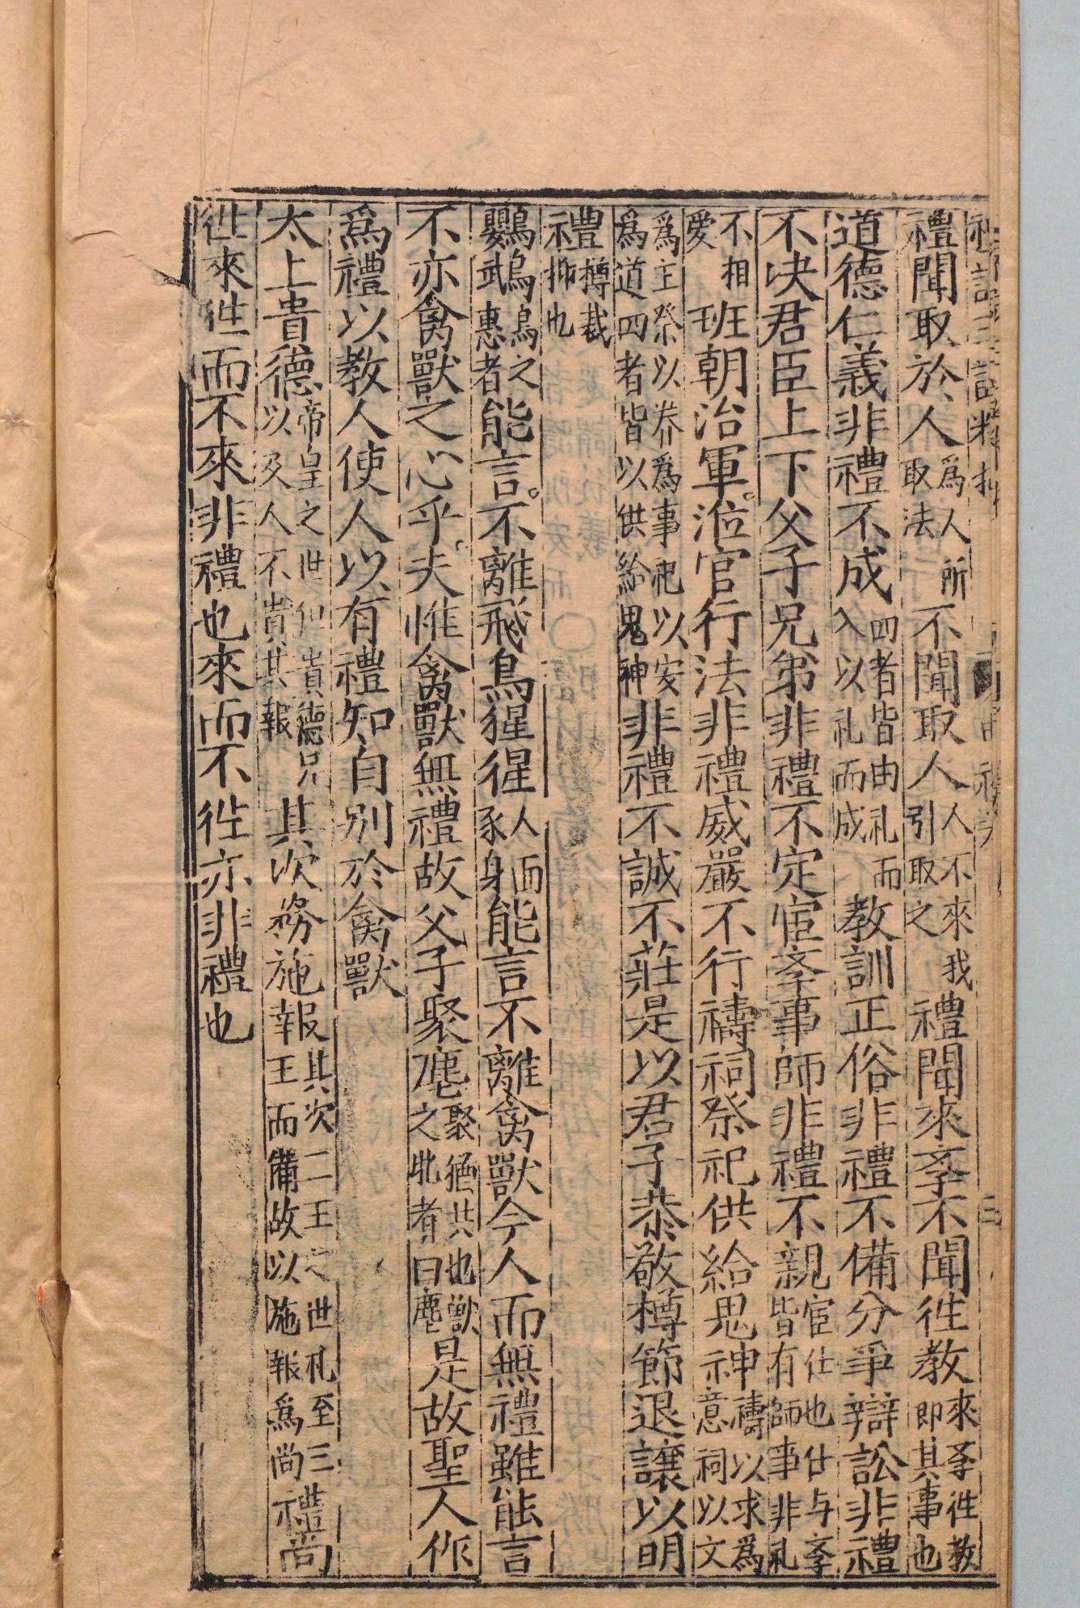 禮聞取於人為人所取法不聞取人人不來我引取之禮聞來斈不聞徃教來斈徃教即其事也
道德仁義非禮不成四者皆由礼而入以礼而成教訓正俗非禮不備分爭辯訟非禮
不决君臣上下父子兄弟非禮不定宦斈事師非禮不親宦仕也仕与斈皆有師事非礼
不相愛班朝治軍涖官行法非禮威嚴不行禱祠祭祀供給鬼神禱以求為意祠以文
為主祭以养為事祀以安為道四者皆以供給鬼神非禮不誠不莊是以君子恭敬樽節退讓以明
禮樽裁抑也
鸚鵡鳥之惠者能言不離飛鳥猩猩人面豕身能言不離禽獸今人而無禮雖能言
不亦禽獸之心乎夫惟禽獸無禮故父子聚麀聚猶共也獸之牝者曰麀是故聖人作
為禮以教人使人以有禮知自別於禽獸
太上貴德帝皇之世但貴德兄以及人不貴其報其次務施報其次二王之世礼至三王而備故以施報為尚禮尚
徃來徃而不來非禮也來而不徃亦非禮也